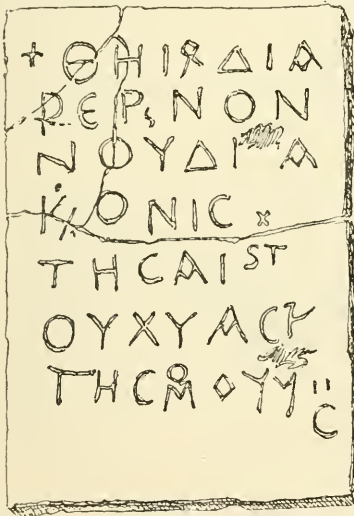 + ΘΗΙΡΔΙΑ
ΡЄΡ,ΝΟΝ
ΝΟΥΔΙ Α
ΚΟΝΙC ×
ΤΗCΑΙST
ΟΥΧΥΑC
ΤΗCΜΟΥ
C